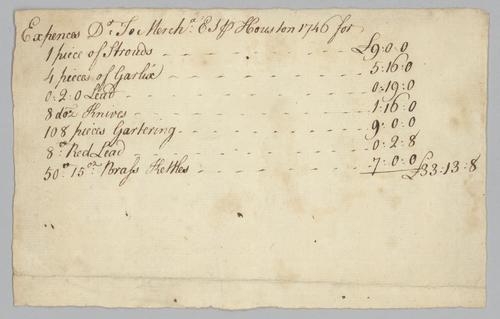 Expences Dr. To Merchs. E & J Houston 1746 for
1 piece of Strouds £9:0:0
4 pieces of Garlix 5:16:0
0:2:0 Lead 0:19:0
8 doz Knives 1:16:0
108 pieces Gartering 9:0:0
8 Red Lead 0:2:8
50 15oz Brass Kettles 7:0:0
£33:13:8